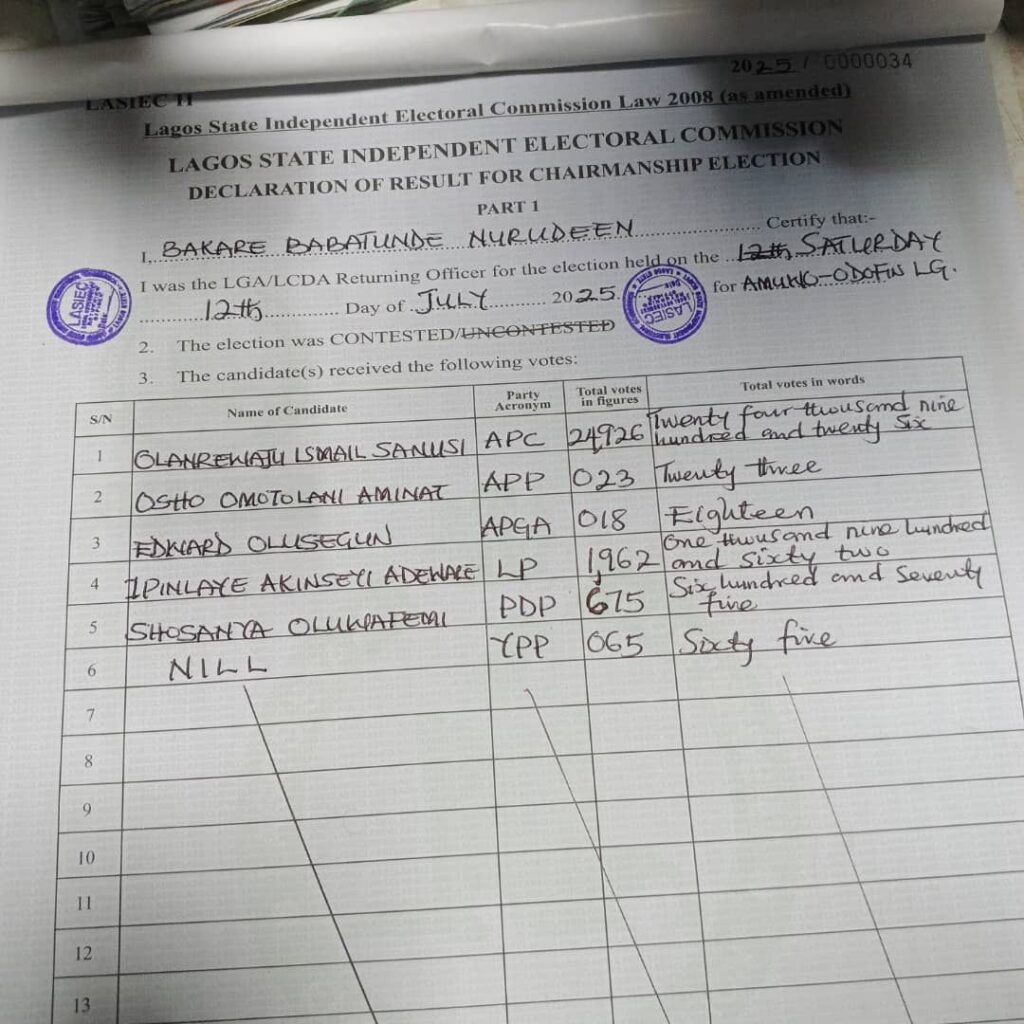 2025 / 0000034
LASIEC 11
Lagos State Independent Electoral Commission Law 2008 (as amended)
LAGOS STATE INDEPENDENT ELECTORAL COMMISSION
DECLARATION OF RESULT FOR CHAIRMANSHIP ELECTION
PART 1
I, BAKARE BABATUNDE NURUDEEN Certify that:-
I was the LGA/LCDA Returning Officer for the election held on the 12th SATURDAY
12th Day of JULY 2025 for AMUWO-ODOFIN LG.
LASIEC
LASIEC
2. The election was CONTESTED/UNCONTESTED
3. The candidate(s) received the following votes:
S/N Name of Candidate Party Acronym Total votes in figures Total votes in words
1 OLANREWAJU ISMAIL SANUSI APC 24,926 Twenty four thousand nine hundred and twenty six
2 OSHO OMOTOLANI AMINAT APP 023 Twenty three
3 EDWARD OLUSEGUN APGA 018 Eighteen
4 IPINLAYE AKINSEYI ADEWALE LP 1,962 One thousand nine hundred and sixty two
5 SHOSANYA OLUWAFEMI PDP 675 Six hundred and seventy five
6 NILL YPP 065 Sixty five
7
8
9
10
11
12
13